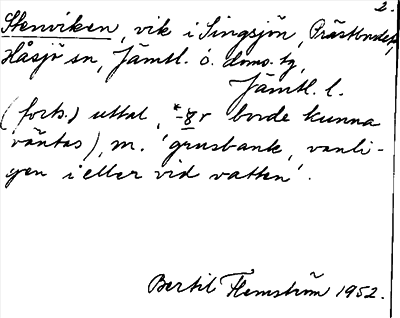 2.
Stenviken, vik i Singsjön, Prästbodet,
Håsjö sn, Jämtl. ö. doms. tg,
Jämtl. l.
(forts.) uttal, *-ər borde kunna
väntas), m. 'grusbank, vanli-
gen i eller vid vatten'.
Bertil Flemström 1952.